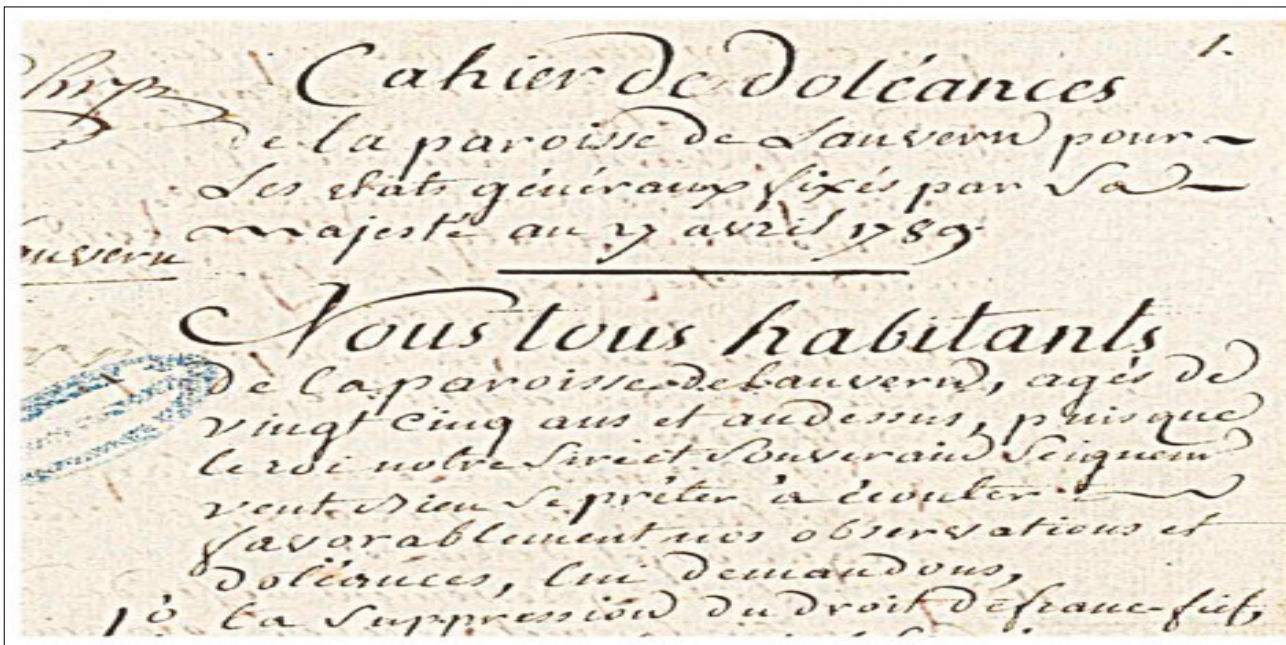 1.
Cahier de doléances
de la paroisse de Lauvern pour
Les etats généraux fixés par Sa
majesté au 27 avril 1789.
auvern
Nous tous habitants
de la paroisse de Lauvern, agés de
vingt cinq ans et audessus, puisque
le roi notre Souverain Seigneur
veut bien se prêter à écouter
favorablement nos observations et
doléances, lui demandons,
1o La Suppression du droit de franc-fief,